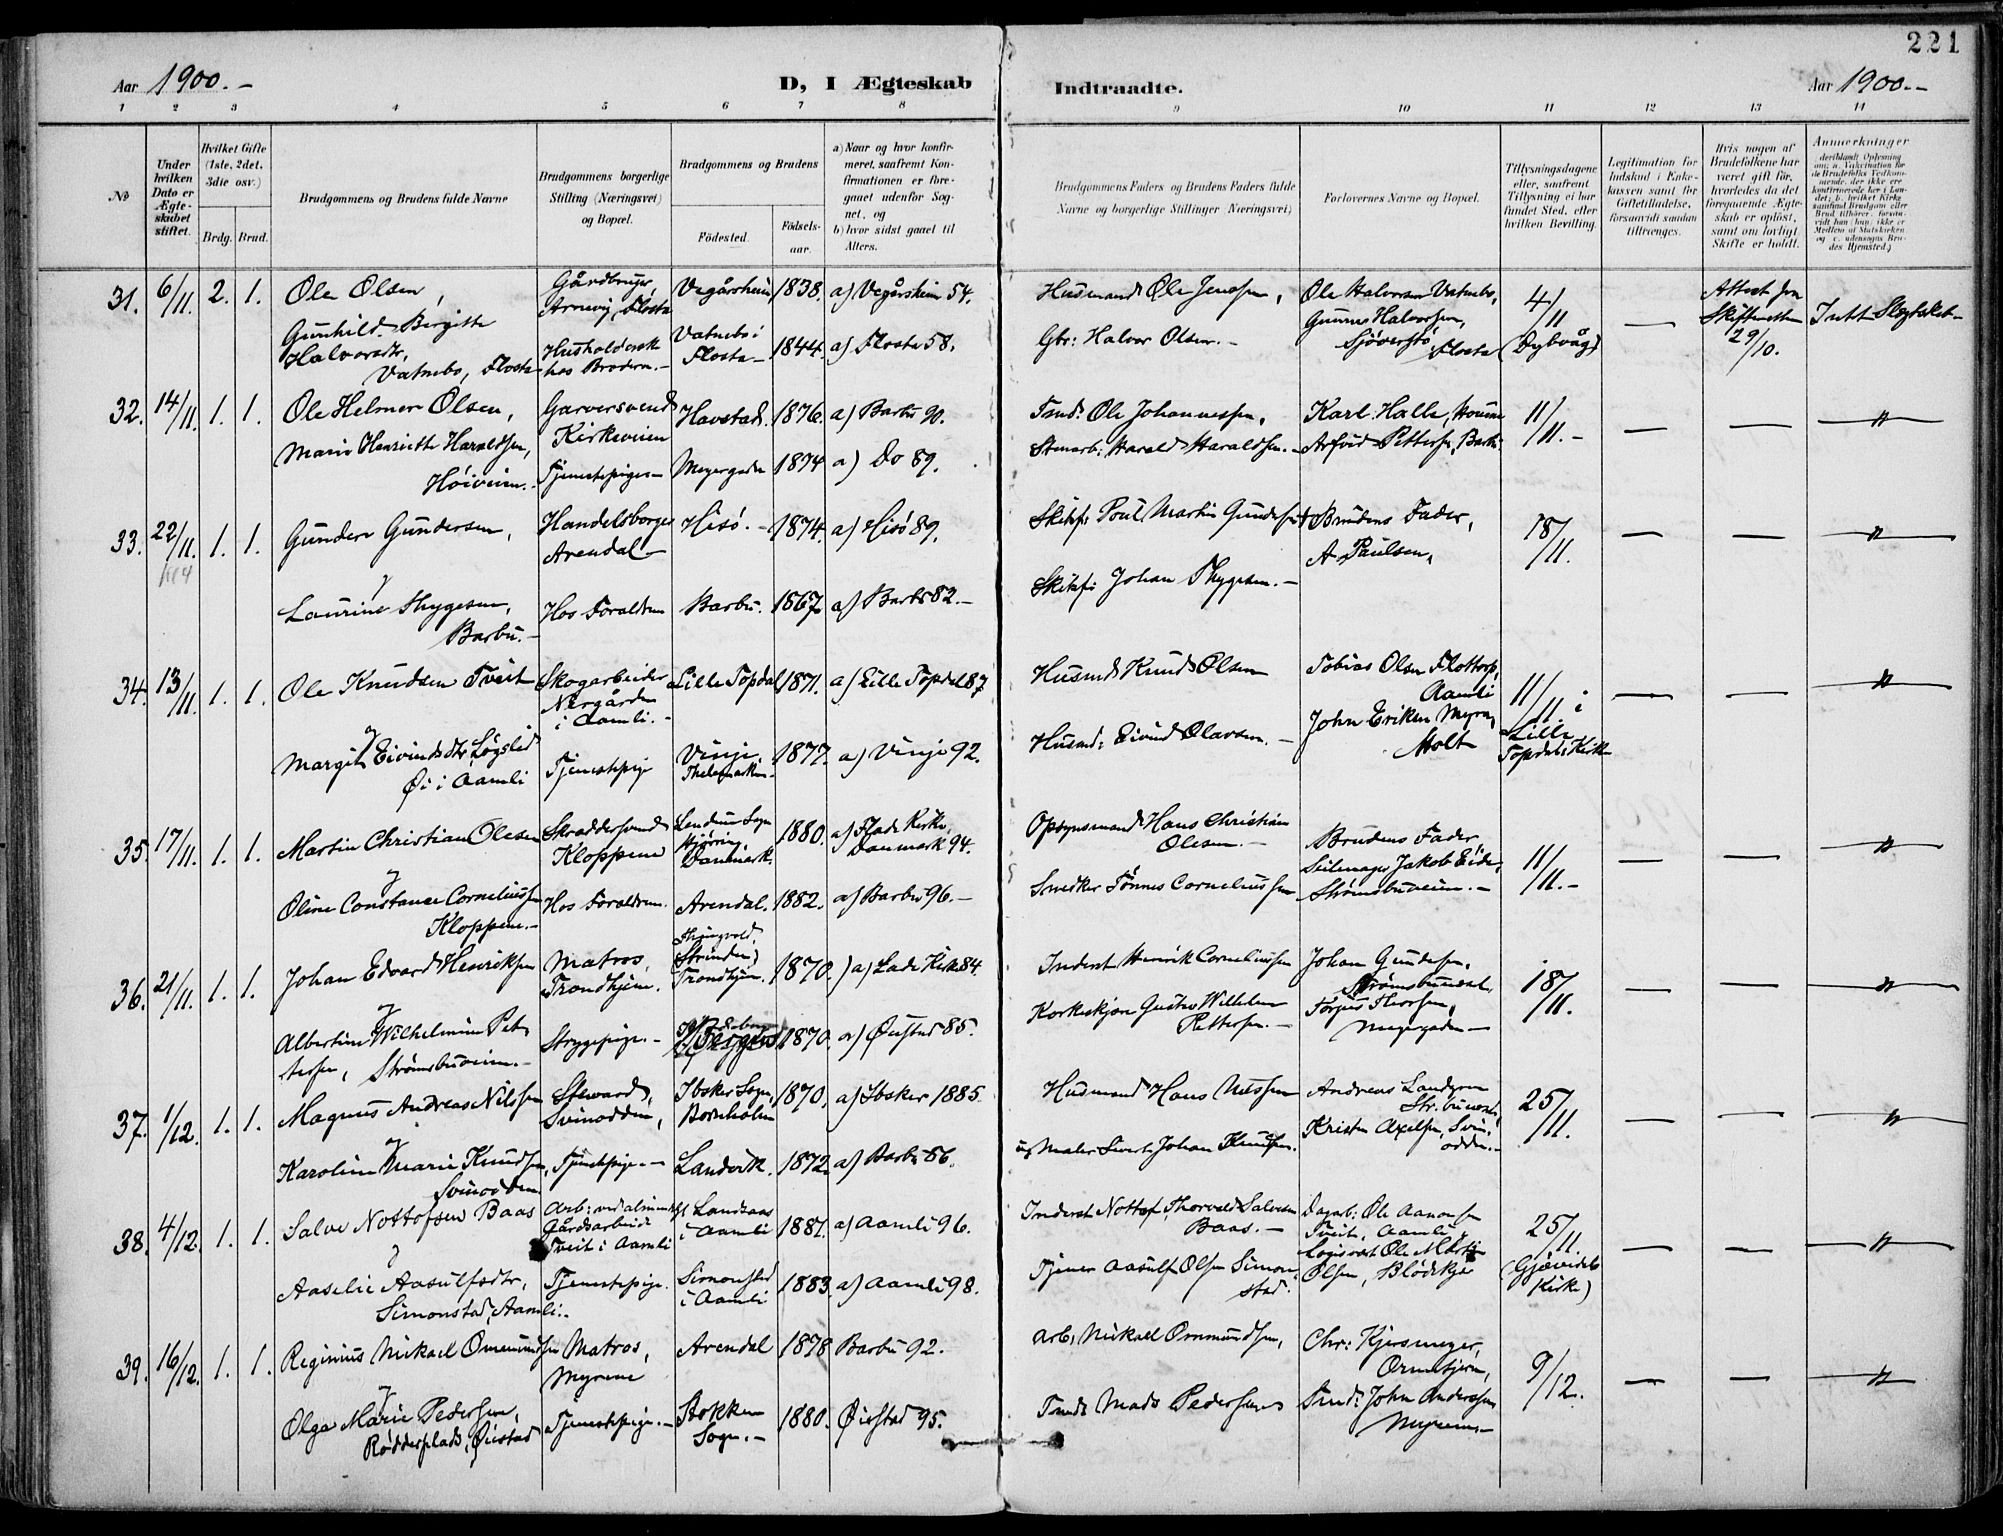 221
Aar 1900.-
D, I Ægteskab
Indtraadte.
Aar 1900.-
1 2 3 4 5 6 7 8 9 10 11 12 13 14
No
Under hvilken Dato er Ægteskabet stiftet.
Hvilket Gifte (1ste, 2det, 3die osv.)
Brdg. Brud.
Brudgommens og Brudens fulde Navne
Brudgommens borgerlige Stilling (Næringsvei) og Bopæl.
Brudgommens og Brudens
Fødested.
Fødselsaar.
a) Naar og hvor konfirmeret, saafremt Konfirmationen er foregaaet udenfor Sognet, og
b) hvor sidst gaaet til Alters.
Brudgommens Faders og Brudens Faders fulde Navne og borgerlige Stillinger Næringsvei)
Forlovernes Navne og Bopæl.
Tillysningsdagene eller, saafremt Tillysning ei har fundet Sted, efter hvilken Bevilling.
Legitimation for Indskud i Enkekassen samt for Giftetilladelse, forsaavidt saadan tiltrænges.
Hvis nogen af Brudefolkene har været gift før, hvorledes da det foregaaende Ægteskab er opløst, samt om lovligt Skifte er holdt.
Anmerkninger
31. 6/11. 2. 1. Ole Olsen, Gårdbruger, Arnevig, Flosta Vegårsheien 1838. a) Vegårsheien 54.
Husmand Ole Jensen, Ole Halvorsen Vatnebo, 4/11
Gunhild Bergitte Halvorsdtr, Vatnebo, Flosta
hos Broderen.- Vatnebo i Flosta- 1844. a) Flosta 58.
Gbr: Halvor Olsen.- Gunnar Halvorsen, Flosta (Dybvåg)
29/10.
32. 14/11. 1. 1. Ole Helmer Olsen, Garversvend Kirkeveien Havstad. 1876. a) Barbu 90.
Tmd: Ole Johannessen, Karl Halle, 11/11.-
Marie Henriette Haraldsen, Høiveien.- Tjenestepige- Meyergaden 1874 a) Do 89.
Stenarb: Harald Haraldsen.- Arfvid Pettersen, Barbu
33. 22/11. 1. 1. Gunder Gundersen, Handelsborger Arendal- Hisø.- 1874. a) Hisø 89.
Skibsf: Poul Martin Gundersen Brudens Fader, 18/11.
A. Paulsen,
Laurine Thygesen, Barbu.- Hos Foraldrene Barbu. 1867. a) Barbu 82.-
Skibsf: Johan Thygesen.-
34. 13/11. 1. 1. Ole Knudsen Tveit Skogarbeider Nergården i Aamli.- Lille Topdal 1871. a) Lille Topdal 87
Husmd Knud Olsen Tobias Olsen Flottorp, Aamli 11/11. i Lille Topdals Kirke
Margit Eivindsdtr Løgslid Øi i Aamli Tjenestepige Vinje, Thelemarken- 1877. a) Vinje 92.
Husmd: Eivind Olavsen.- John Eriksen Myra, Holt
35. 17/11. 1. 1. Martin Christian Olesen Skraddersvend Kloppene Lendum Sogn Hjørring Danmark. 1880. a) Flade Kirke, Danmark 94.
Opsynsmand Hans Christian Olesen.- Brudens Fader 11/11.-
Oline Constance Corneliussen Kloppene.- Hos Foraldrene. Arendal. 1882. a) Barbu 96.-
Snedker Tønnes Corneliussen Seilmager Jakob Eide, Strømsbuveien.-
36. 21/11. 1. 1. Johan Edvard Henriksen Matros, Trondhjem. Strinden, Trondhjem. 1870. a) Lade Kirke 84.
Inderst Henrik Corneliussen Johan Gundersen, 18/11.
Albertine Wilhelmine Pettersen, Strømsbuveien.- Strygepige.- 1870. a) Øiestad 85.
Gustav Wilhelm Pettersen.- Torjus Thorsen, Meyergaden-
37. 1/12. 1. 1. Magnus Andreas Nilssen Steward, Svinodden, Ibsker Sogn, Bornholm 1870. a) Ibsker 1885.
Husmand Hans Nilssen Andreas Landgren 25/11.
Karoline Marie Knudsen, Svinodden. Tjenestepige.- Landvik. 1872. a) Barbu 86.
Maler Sivert Johan Knudsen. Kristen Axelsen, Svinodden.-
38. 4/12. 1. 1. Salve Nottofsen Baas Arb: ved almindeligt Gårdsarbeide Tveit i Aamli Landaas i Aamli 1881. a) Aamli 96.
Inderst Nottof Thorvald Salvesen Baas.- Dagarb: Ole Aanonsen Tveit, Aamli, 25/11. (Gjøvdals Kirke)
Aaselie Aasulfsdtr, Simonstad, Aamli.- Tjenestepige. Simonstad i Aamli 1883. a) Aamli 98.
Tjener Aasulf Olsen Simonstad. Ole Martin Olsen, Blødekjær
39. 16/12. 1. 1. Reginius Mikael Ommundsen Matros, Myrene Arendal 1878 Barbu 92.
Arb, Mikael Ommundsen, Chr: Kjersmeyer, 9/12.
Olga Marie Pedersen, Rødderplads, Øiestad Tjenestepige.- Stokken Sogn.- 1880. Øiestad 95.
Tmd: Mads Pedersen Tmd: John Anderssen Myrene.-